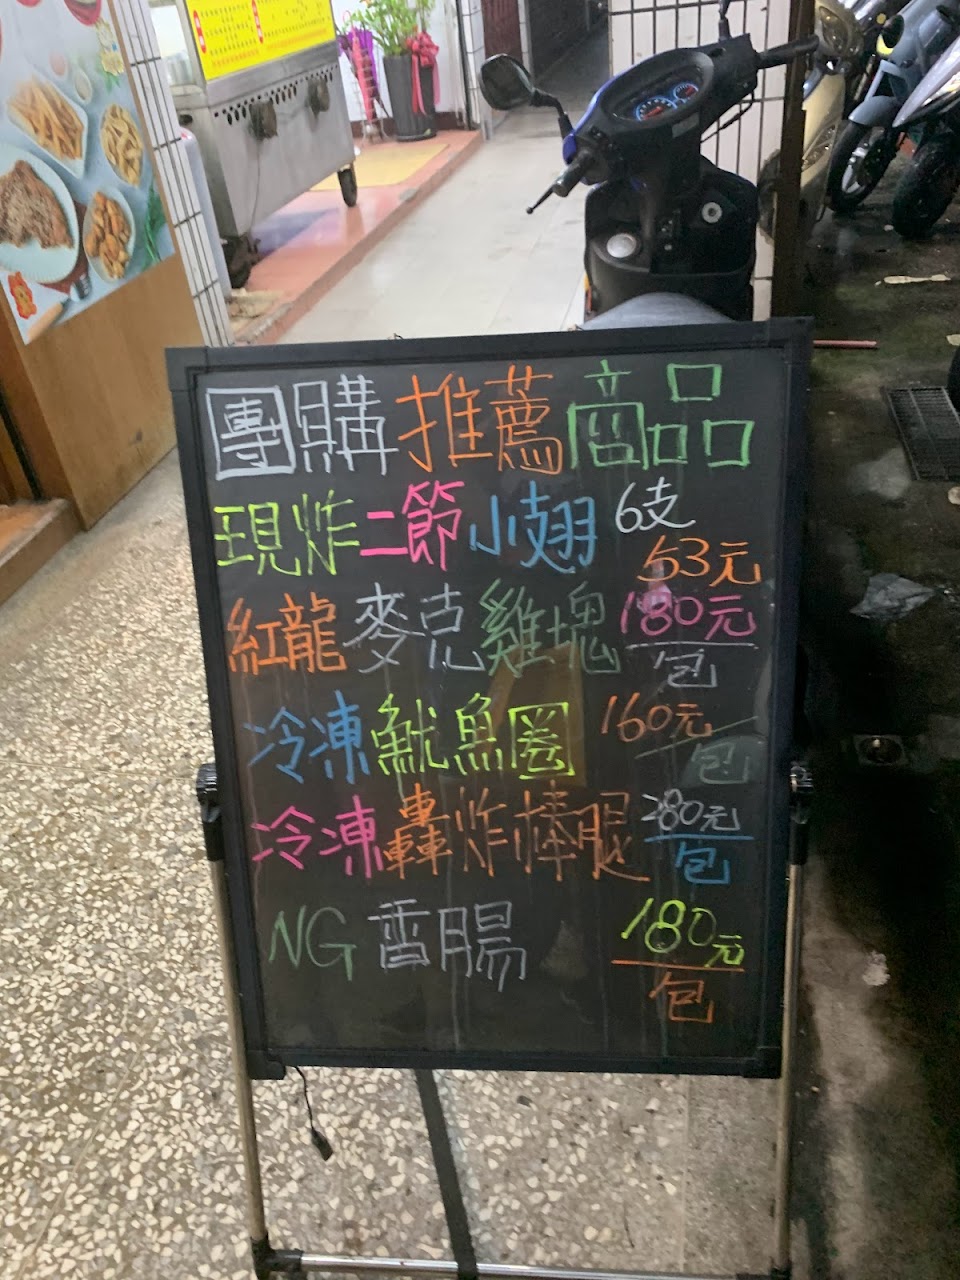 團購推薦商品
現炸二節小翅 6支
53元
紅龍麥克雞塊 180元
包
冷凍魷魚圈 160元
包
冷凍轟炸棒腿 280元
包
NG香腸 180元
包